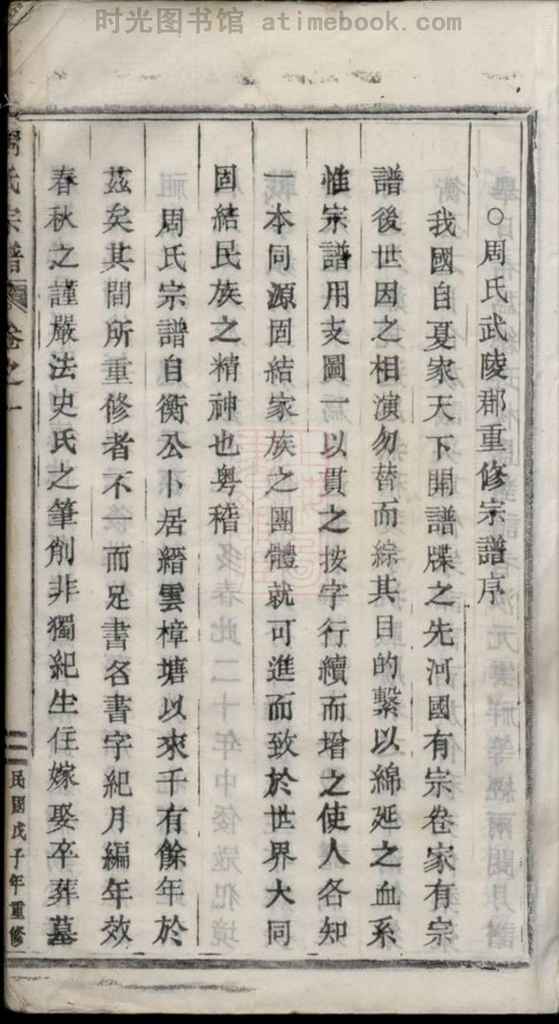 时光图书馆 atimebook.com
○周氏武陵郡重修宗譜序
我國自夏家天下開譜牒之先河國有宗卷家有宗
譜後世因之相演勿替而綜其目的繫以綿延之血系
惟宗譜用支圖一以貫之按字行續而增之使人各知
一本同源固結家族之團體就可進而致於世界大同
固結民族之精神也粤稽
周氏宗譜自衡公卜居縉雲樟塘以來千有餘年於
茲矣其間所重修者不一而足書名書字紀月編年效
春秋之謹嚴法史氏之筆削非獨紀生住嫁娶卒葬墓
周氏宗譜 卷之一
民國戊子年重修